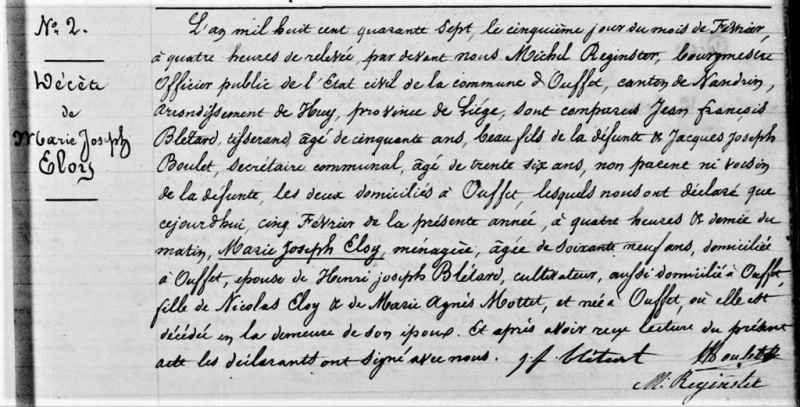 N.º 2.
Décès
de
Marie Joseph
Eloy
L'an mil huit cent quarante sept, le cinquième jour du mois de Février,
à quatre heures de relevée, par devant nous Michel Reginster, bourgmestre
Officier public de l'Etat civil de la commune d'Ouffet, canton de Nandrin,
arondissement de Huy, province de Liége, sont comparus Jean françois
Blétard, tisserand, âgé de cinquante ans, beau fils de la défunte & Jacques Joseph
Boulet, secrétaire communal, âgé de trente six ans, non parent ni voisin
de la défunte, les deux domiciliés à Ouffet, lesquels nous ont déclaré que
cejourdhui, cinq Février de la présente année, à quatre heures & demie du
matin, Marie Joseph Eloy, ménagère, âgée de soixante neuf ans, domiciliée
à Ouffet, epouse de Henri joseph Blétard, cultivateur, aussi domicilié à Ouffet,
fille de Nicolas Eloy & de Marie Agnès Mottet, et née à Ouffet, où elle est
décédée en la demeure de son époux. Et après avoir reçu lecture du présent
acte les déclarants ont signé avec nous. j f blétart JJBoulet
M. Reginster